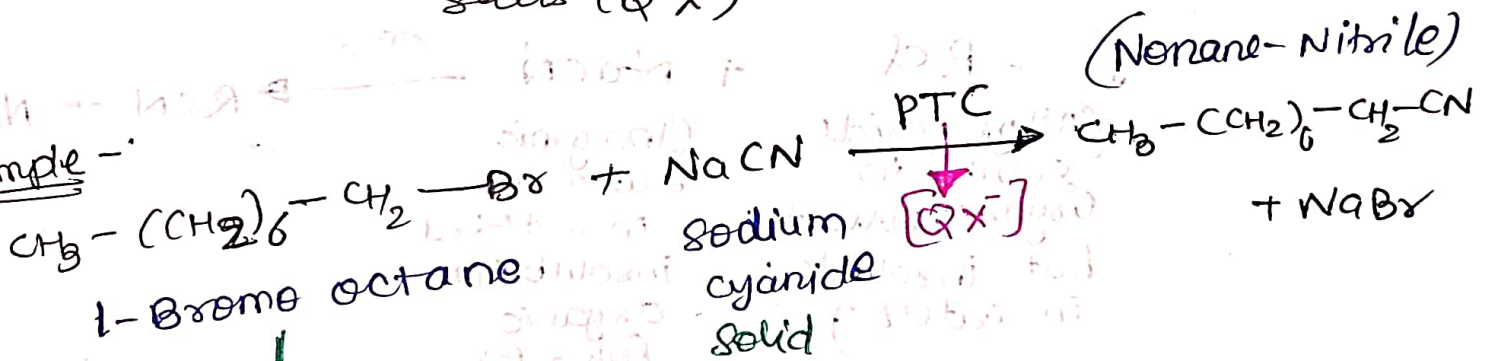 (QX)
(Nonane-Nitrile)
mple -
CH3 - (CH2)6 - CH2 - Br + NaCN PTC CH3 - (CH2)6 - CH2 - CN
[QX-] + NaBr
1-Bromo octane sodium
cyanide
solid